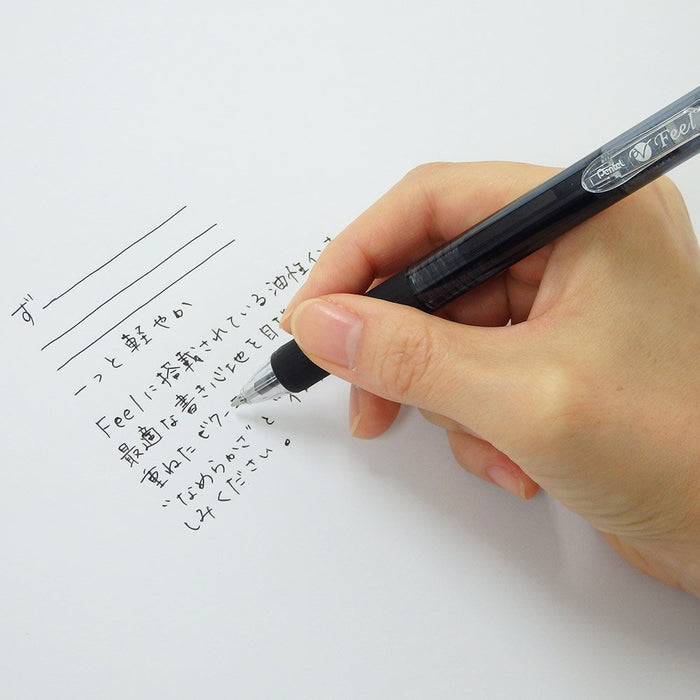 ず
ーっと軽やか
Feelに搭載されている油性イン
最適な書き心地を目
重ねた ビク
"なめらかさ" と
しみください。
Pentel Feel